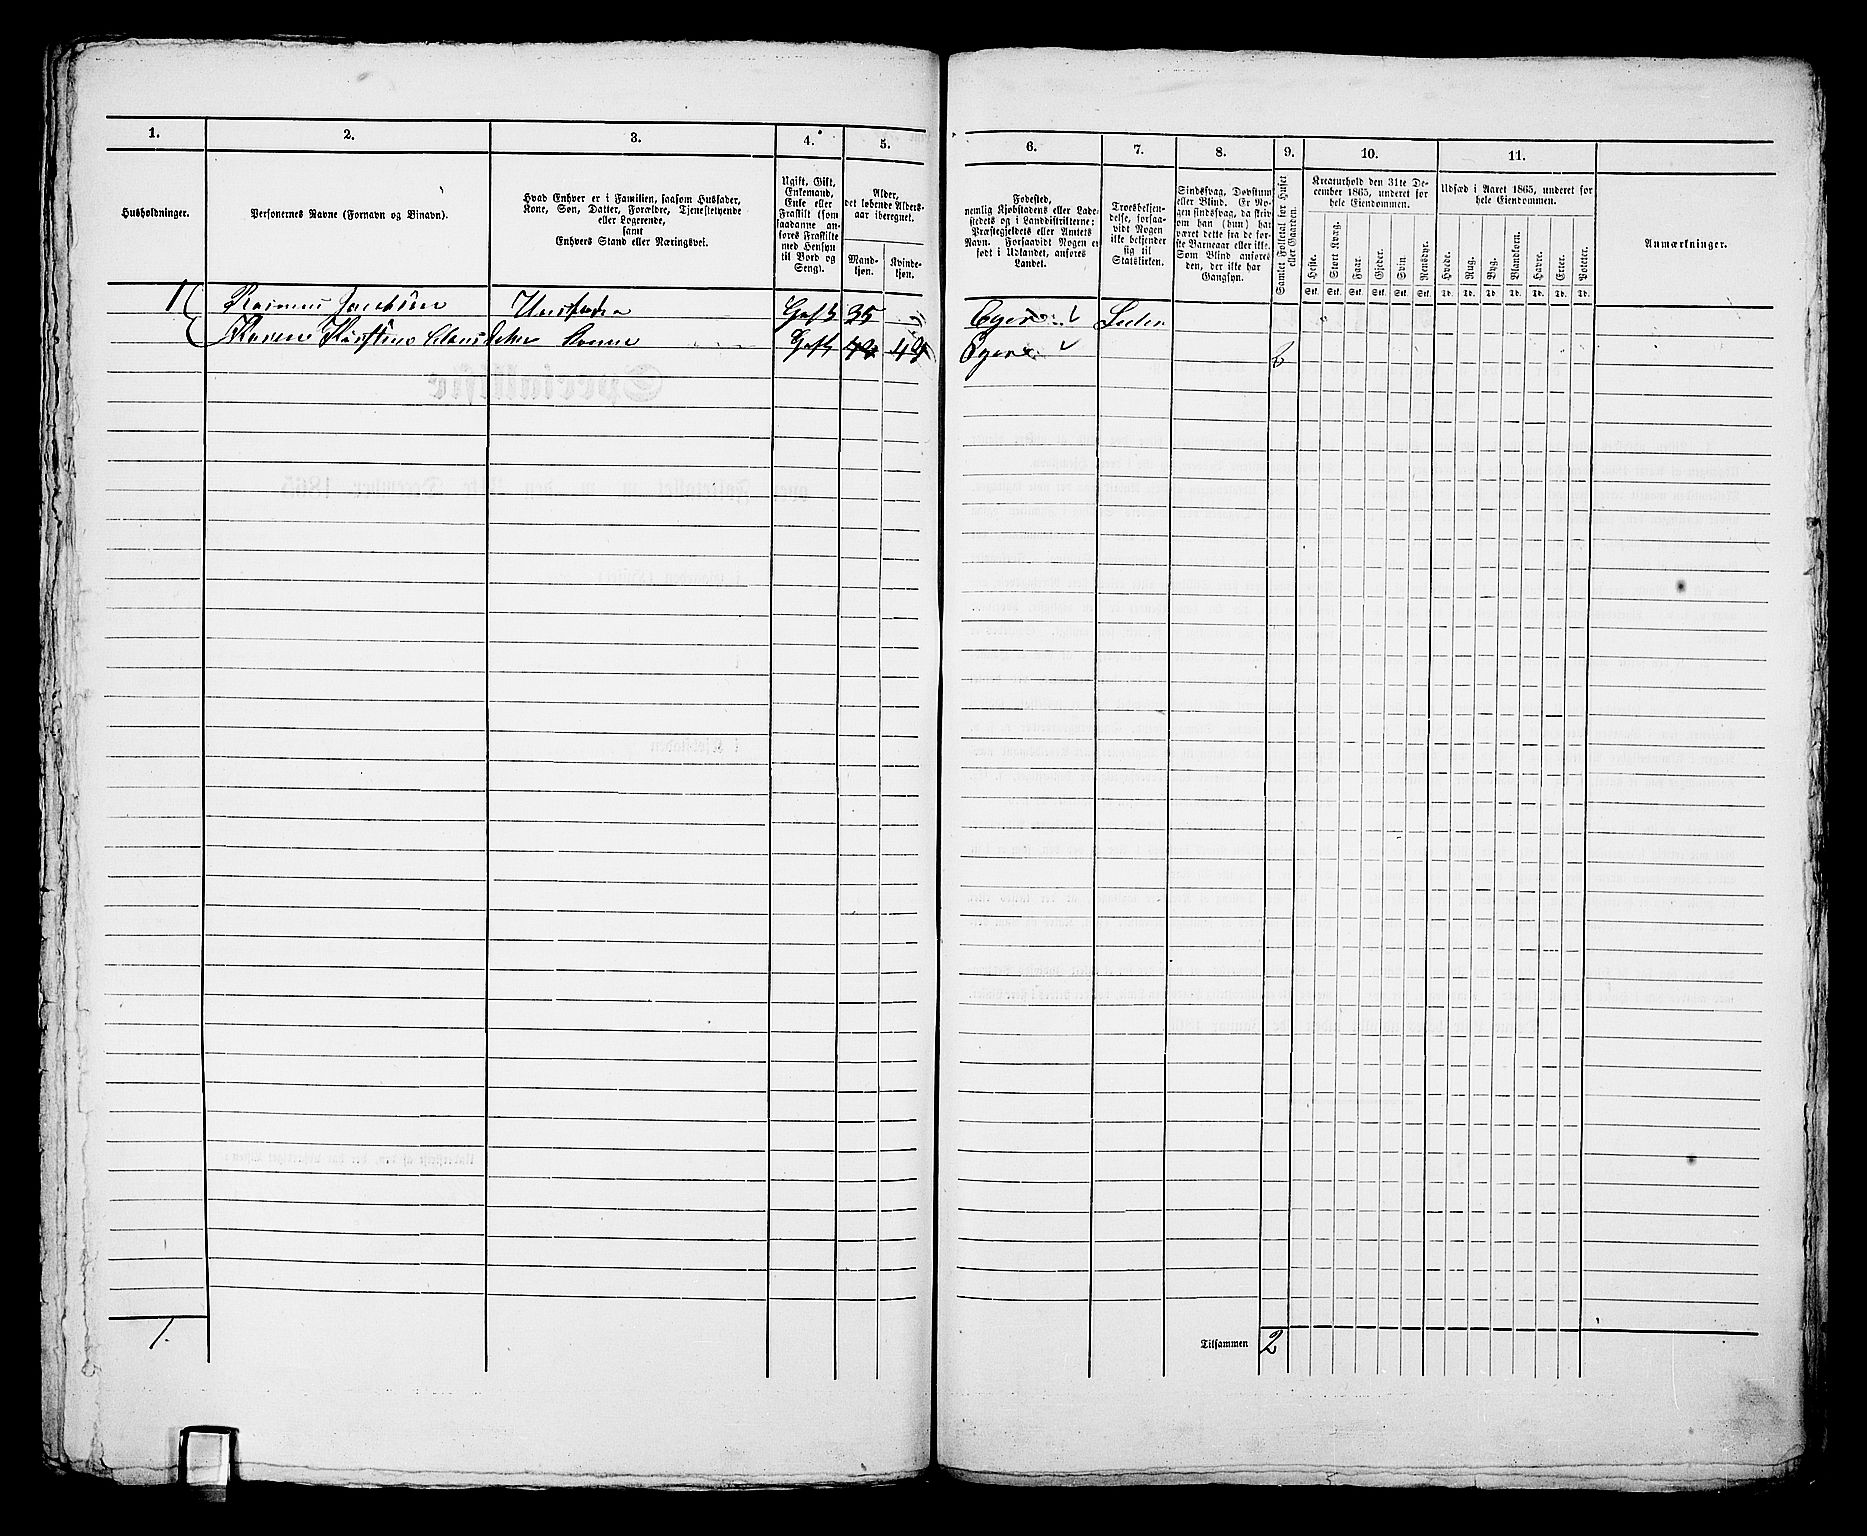 1. 2. 3. 4. 5.
Husholdninger.
Personernes Navne (Fornavn og Binavn).
Hvad Enhver er i Familien, saasom Husfader,
Kone, Søn, Datter, Forældre, Tjenestetyende
eller Logerende,
samt
Enhvers Stand eller Næringsvei.
Ugift, Gift,
Enkemand,
Enke eller
Fraskilt (som
saadanne an-
føres Fraskilte
med Hensyn
til Bord og
Seng).
Alder,
det løbende Alders-
aar iberegnet.
Mand-
kjøn.
Kvinde-
kjøn.
1 Rasmus Jacobsen Husfader Gift 35
Karen Kirstine Kone Gift
1.
6. 7. 8. 9. 10. 11.
Fødested,
nemlig Kjøbstadens eller Lade-
stedets og i Landdistrikterne:
Præstegjeldets eller Amtets
Navn. Forsaavidt Nogen er
født i Udlandet, anføres
Landet.
Troesbekjen-
delse, forsaa-
vidt Nogen
ikke bekjender
sig til
Statskirken.
Sindssvag, Døvstum
eller Blind. Er No-
gen sindssvag, da skriv
om han (hun) har
været dette fra de før-
ste Barneaar eller ikke.
Som Blind anføres
den, der ikke har
Gangsyn.
Samlet Folketal for Huset
eller Gaarden.
Kreaturhold den 31te De-
cember 1865, underet for
hele Eiendommen.
Heste. Stort Kvæg. Faar. Gjeder. Svin. Rensdyr.
Stk. Stk. Stk. Stk. Stk. Stk.
Udsæd i Aaret 1865, underet for
hele Eiendommen.
Hvede. Rug. Byg. Blandkorn. Havre. Erter. Poteter.
Td. Td. Td. Td. Td. Td. Td.
Anmærkninger.
2
Tilsammen 2